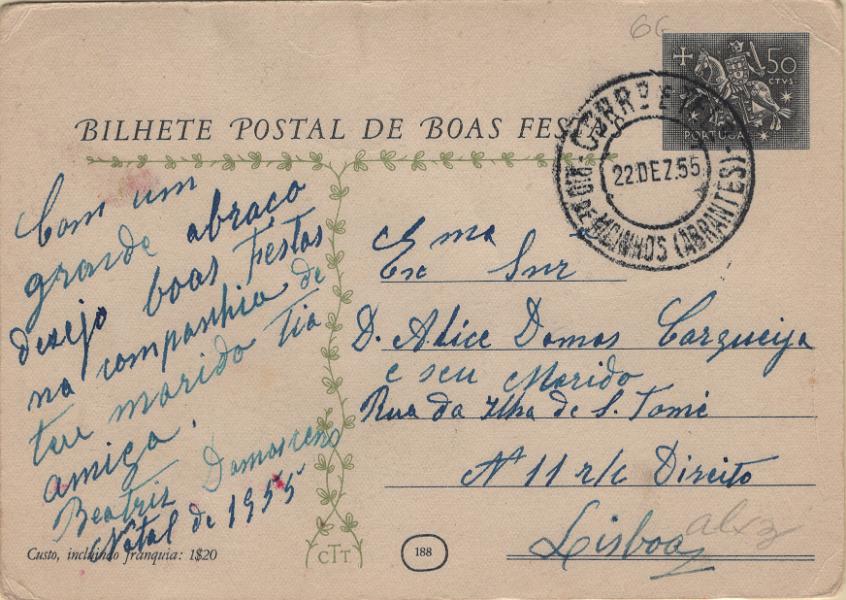 66
50
CTVS.
PORTUGAL
BILHETE POSTAL DE BOAS FES
22.DEZ.55
RIO DE MOINHOS (ABRANTES)
Com um
grande abraço
desejo boas Festas
na companhia de
teu marido tia
amiga.
Beatriz Damasceno
Natal de 1955
Custo, incluindo franquia: 1$20
CTT
188
Ema
Exc Snr
D. Alice Damas Carqueija
e seu Marido
Rua da Ilha de S. Tomé
Nº 11 r/c Direito
Lisboa